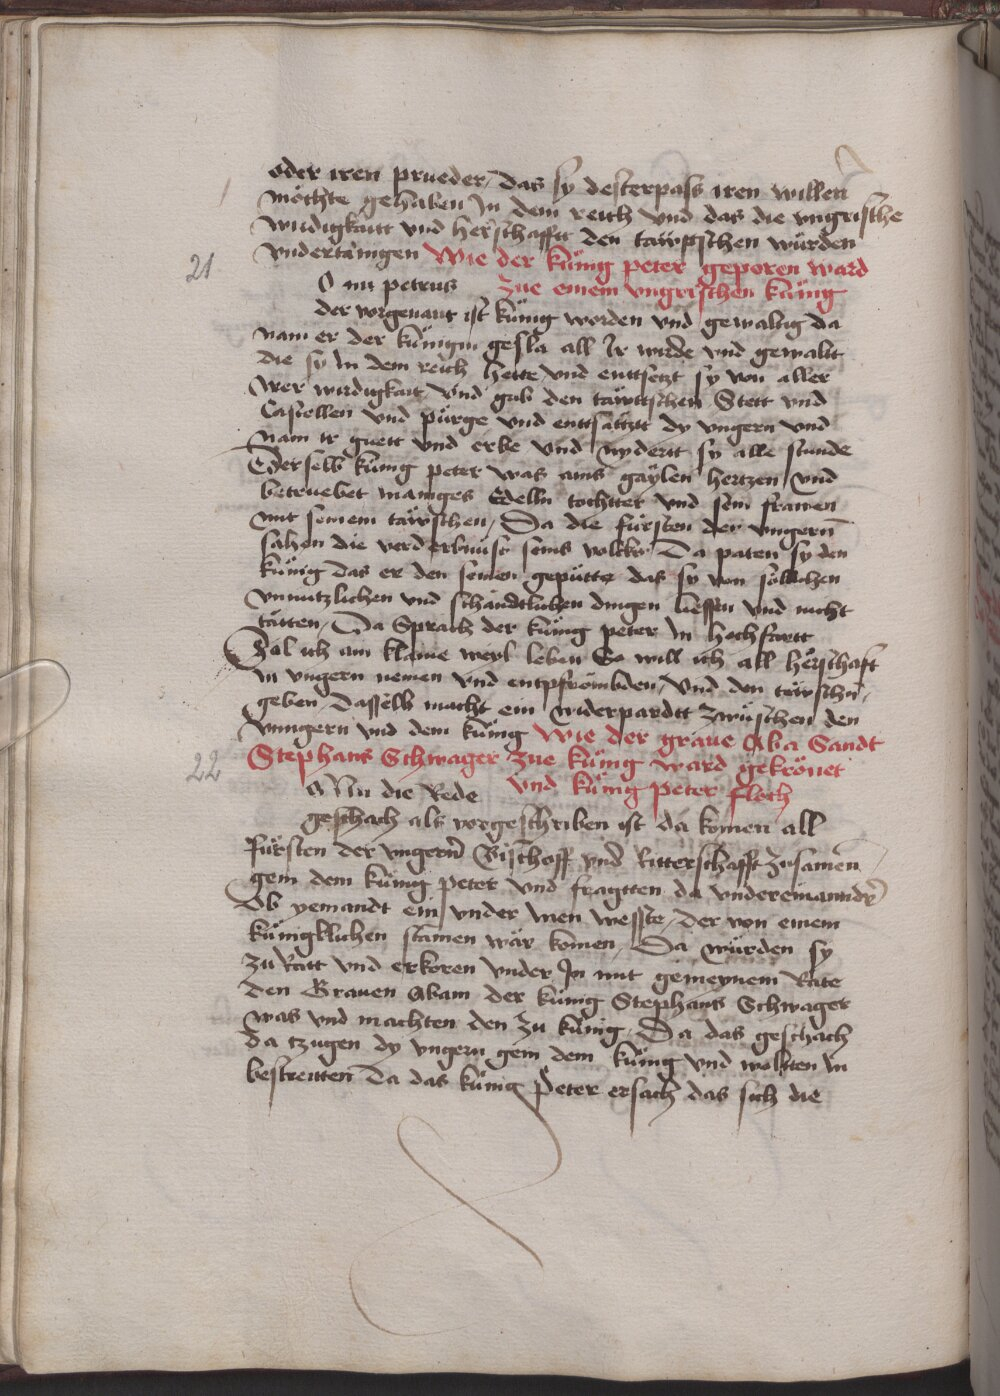 oder iren prueder / das sy desterpass iren willen
möchte gehaben In dem reich vnd das die vngrische
wirdigkaitt vnd herschafft den tawtschen würden
vndertänigen Wie der künig peter geporen ward
21
O nu petrus zue einem vngrischen künig
der vorgenant ist künig worden vnd gewaltig da
nam er der künigin gesla all Ir wirde vnd gewalt
die sy In dem reich hette vnd enttsetzt sy von aller
Irer wirdigkait / Vnd gab den tawttschen Stett vnd
Castellen vnd pürge vnd enttsatztt dy vngern vnd
nam Ir guett vnd erbe vnd nydertt sy alle stunde
Ederselb künig peter was ains gaÿlen hertzen vnd
betruebet maniges Edelln tochtter vnd sein frawen
mit seinem tawschen / Da die fürsten der vngern
sahen die verderbnüss seins volcks Da paten sy den
künig das er den seinen gepütte das sy von söllichen
vnnutzlichen vnd schandtlichen dingen liessen vnd nicht
tätten / Da Sprach der künig peter In hochfartt
Sol ich ain klaine weyl leben So will ich all herschaft
in vngern nemen vnd entpfrömbden / Vnd den tewschn
geben / Dasselb macht ein widerpardtt zwüschen den
vnngern vnd dem künig Wie der graue Aba Sandt
Stephans Schwager zue künig ward gekrönet
22
Nu die Rede vnd künig peter floch
geschach als vorgeschriben ist da komen all
fürsten der vngern Bischoff vnd Ritterschafft zusamen
gem dem künig peter vnd fragtten da vndereinanndr
Ob yemandt ein vnder Inen wesste / der von einem
künigklichen stamen wär komen / Da würden sy
zu Ratt vnd erkoren vnder In mit gemeynem Rate
den Grauen Abam der künig Stephans Schwager
was vnd machten den zu künig / Da das geschach
da tzugen dy vngern gem dem künig vnd woltten In
bestreitten Da das künig Peter ersach das sich die